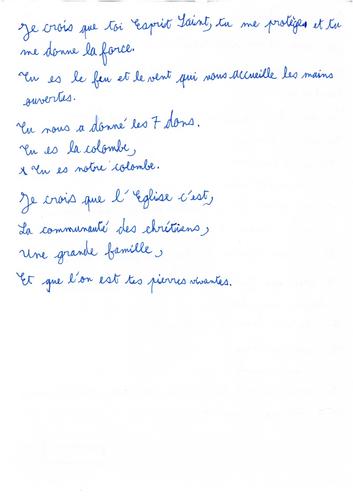 Je crois que toi Esprit Saint, tu me protèges et tu
me donne la force.
Tu es le feu et le vent qui nous accueille les mains
ouvertes.
Tu nous a donné les 7 dons.
Tu es la colombe,
x Tu es notre colombe.
Je crois que l'Eglise c'est,
La communauté des chrétiens,
Une grande famille,
Et que l'on est tes pierres vivantes.